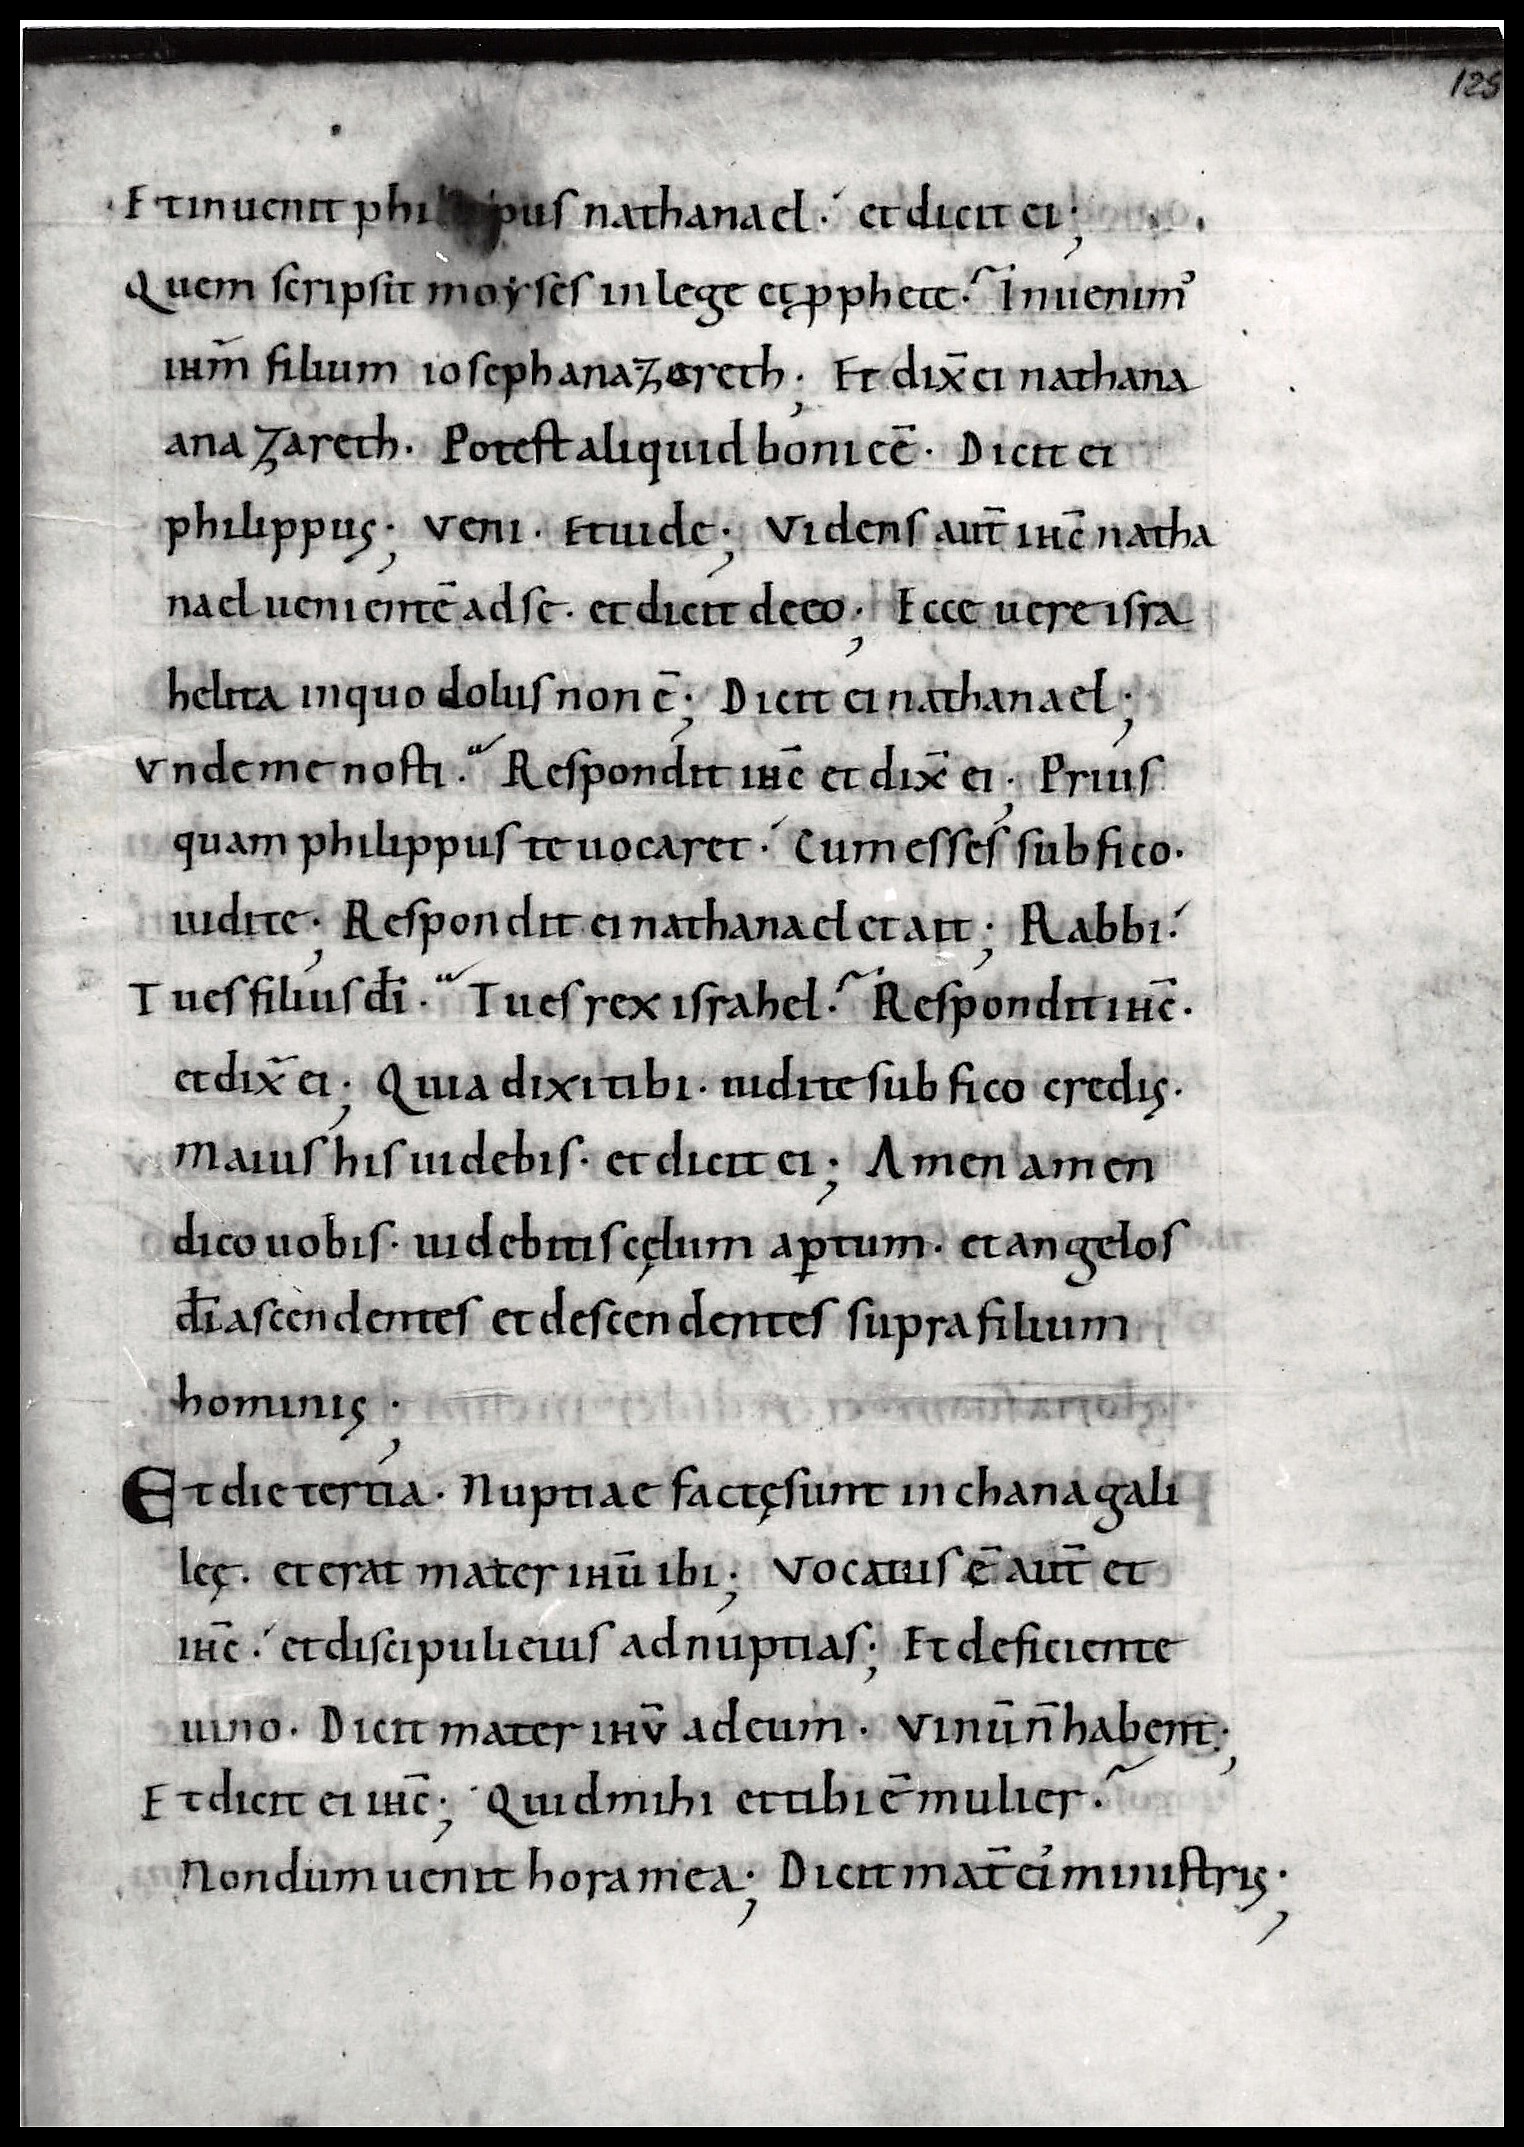 125
Et inuenit philippus nathanael. et dicit ei;
Quem scripsit moyses in lege et ꝓphete. Inuenimꝰ
ihm̄ filium ioseph anazareth; Et dix̄ ei nathana
anazareth. Potest aliquid boni eē. Dicit ei
philippus; Veni. Et uide; Videns aut̄ ihc̄ natha
nael uenientē ad se. et dicit de eo; Ecce uere isra
helita in quo dolus non ē; Dicit ei nathanael;
Vnde me nosti. Respondit ihc̄ et dix̄ ei; Prius
quam philippus te uocaret. Cum esses sub fico.
uidi te; Respondit ei nathanael et ait; Rabbi.
Tu es filius dī. Tu es rex israhel. Respondit ihc̄.
et dix̄ ei; Quia dixi tibi. uidi te sub fico credis.
Maius his uidebis. et dicit ei; Amen amen
dico uobis. uidebitis cęlum aꝑtum. et angelos
dī ascendentes et descendentes supra filium
hominis;
Et die tertia. Nuptiae factę sunt in chana gali
lęę. et erat mater ihū ibi; Vocatus ē aut̄ et
ihc̄. et discipuli eius ad nuptias; Et deficiente
uino. Dicit mater ihū ad eum. Vinū n̄ habent;
Et dicit ei ihc̄; Quid mihi et tibi ē mulier.
Nondum uenit hora mea; Dicit mat̄ ei' ministris;